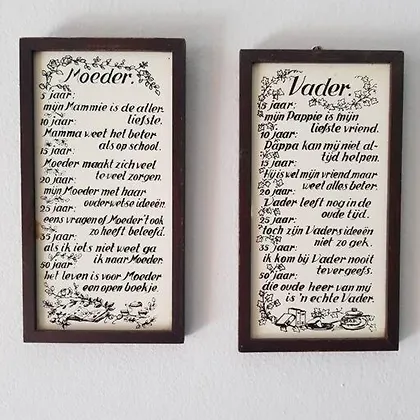 Moeder.
5 jaar:
mijn Mammie is de aller.
10 jaar: liefste.
Mamma weet het beter
15 jaar: als op school.
Moeder maakt zich veel
20 jaar: te veel zorgen.
mijn Moeder met haar
25 jaar: ouderwetse ideëen.
eens vragen of Moeder 't ook
35 jaar: zo heeft beleefd.
als ik iets niet weet ga
50 jaar: ik naar Moeder.
het leven is voor Moeder
een open boekje.
Vader.
5 jaar:
mijn Pappie is mijn
10 jaar: liefste vriend.
Pappa kan mij niet al-
15 jaar: tijd helpen.
Hij is wel mijn vriend, maar
20 jaar: weet alles beter.
Vader leeft nog in de
25 jaar: oude tijd.
toch zijn Vaders ideëen
35 jaar: niet zo gek.
ik kom bij Vader nooit
50 jaar: tevergeefs.
die oude heer van mij
is 'n echte Vader.